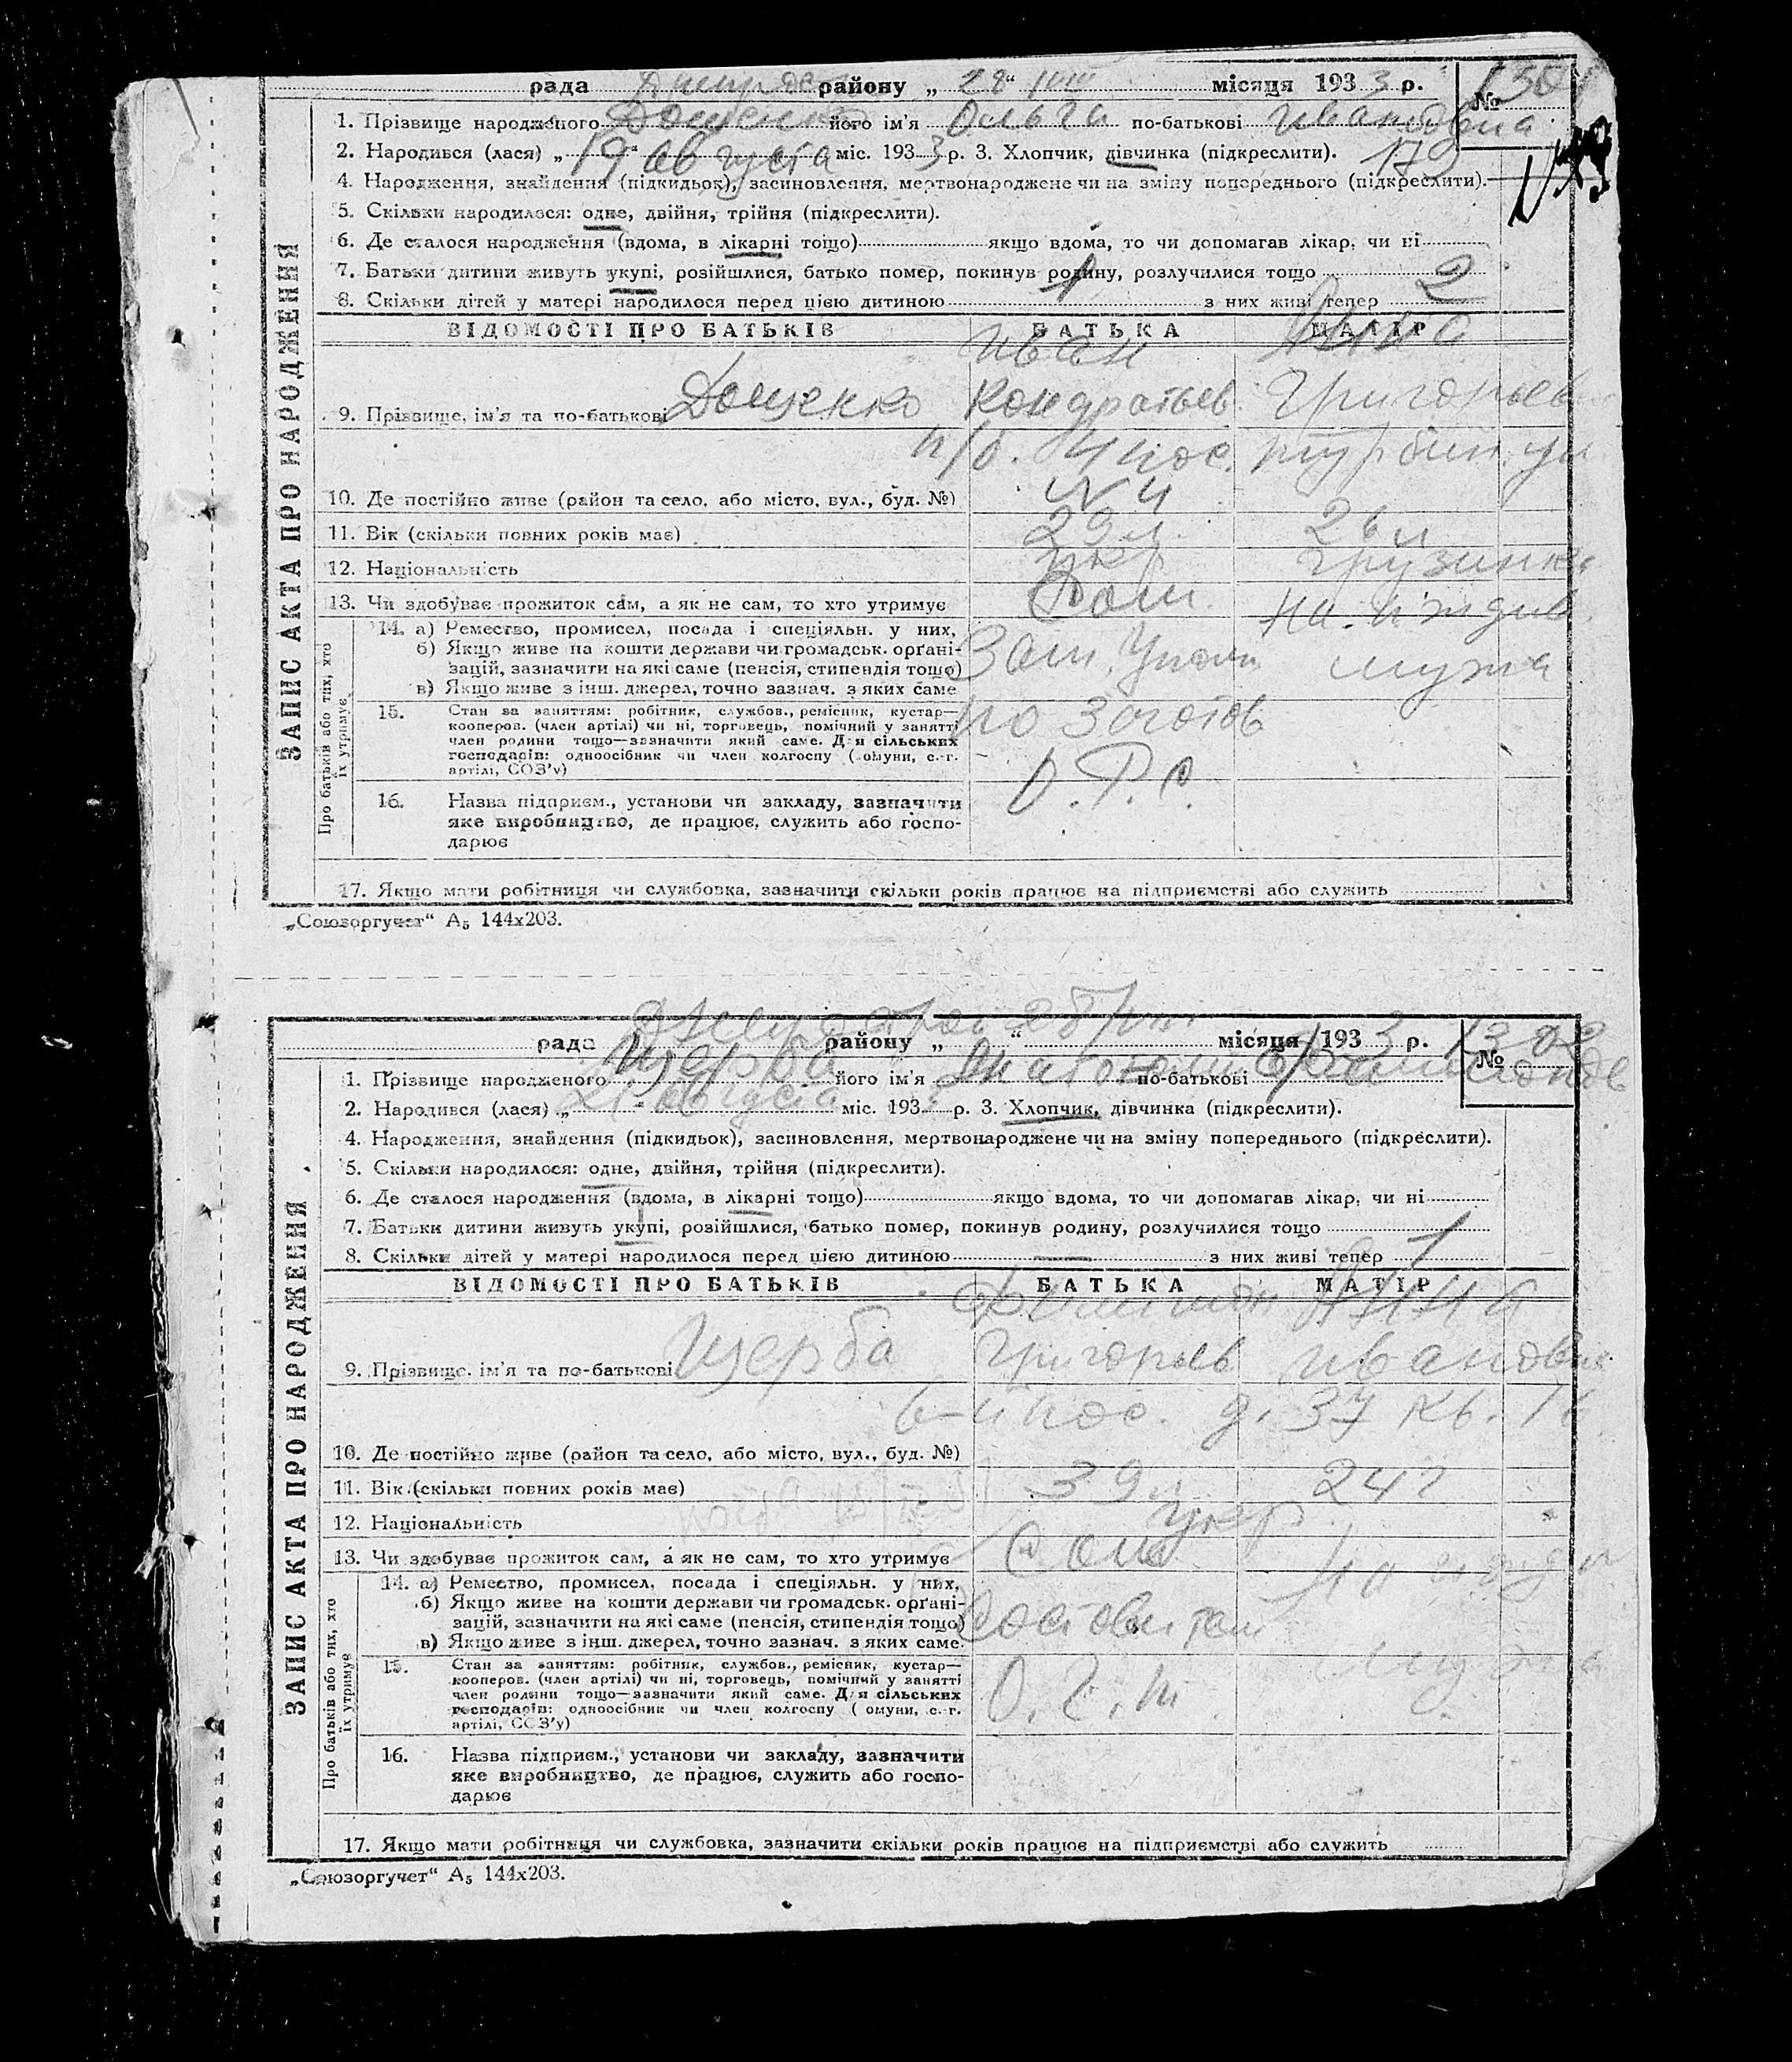 рада Днепрост району „ 28 “ VIII місяця 1933 р. № 1301
1. Прізвище народженого Дощенко його ім'я Ольга по-батькові Ивановна
2. Народився (лася) „ 19 “ августа міс. 1933 р. 3. Хлопчик, дівчинка (підкреслити). 179
4. Народження, знайдення (підкидьок), засиновлення, мертвонароджене чи на зміну попереднього (підкреслити).
5. Скільки народилося: одне, двійня, трійня (підкреслити).
6. Де сталося народження (вдома, в лікарні тощо) якщо вдома, то чи допомагав лікар, чи ні
7. Батьки дитини живуть укупі, розійшлися, батько помер, покинув родину, розлучилися тощо
8. Скільки дітей у матері народилося перед цією дитиною 1 з них живі тепер 2
ЗАПИС АКТА ПРО НАРОДЖЕННЯ
ВІДОМОСТІ ПРО БАТЬКІВ БАТЬКА МАТІР
Иван Анна
9. Прізвище, ім'я та по-батькові Дощенко Кондратьев. Григорьев
п/б. 4 пос. турбин. ул
10. Де постійно живе (район та село, або місто, вул., буд. №) № 4
11. Вік (скільки повних років має) 29 л. 26 л
12. Національність укр грузинка
13. Чи здобуває прожиток сам, а як не сам, то хто утримує Сам на иждив.
Про батьків або тих, хто їх утримує
14. а) Ремество, промисел, посада і спеціяльн. у них, Зам. Уполн мужа
б) Якщо живе на кошти держави чи громадськ. орґані-
зацій, зазначити на які саме (пенсія, стипендія тощо)
в) Якщо живе з інш. джерел, точно зазнач. з яких саме
15. Стан за заняттям: робітник, службов., ремісник, кустар— по заготов
кооперов. (член артілі) чи ні, торговець, помічний у занятті
член родини тощо—зазначити який саме. Для сільських
господарів: одноосібник чи член колгоспу (комуни, с.-г.
артілі, СОЗ'у)
О. Р. С.
16. Назва підприєм., установи чи закладу, зазначити
яке виробництво, де працює, служить або госпо-
дарює
17. Якщо мати робітниця чи службовка, зазначити скільки років працює на підприємстві або служить
„Союзоргучет“ А₅ 144х203.
Днепрострой 28/VIII
рада району „ “ місяця 1933 р. № 1302
1. Прізвище народженого Щерба його ім'я Анатолий по-батькові Филимонов
2. Народився (лася) „ 21 “ августа міс. 193 р. 3. Хлопчик, дівчинка (підкреслити).
4. Народження, знайдення (підкидьок), засиновлення, мертвонароджене чи на зміну попереднього (підкреслити).
5. Скільки народилося: одне, двійня, трійня (підкреслити).
6. Де сталося народження (вдома, в лікарні тощо) якщо вдома, то чи допомагав лікар, чи ні
7. Батьки дитини живуть укупі, розійшлися, батько помер, покинув родину, розлучилися тощо
8. Скільки дітей у матері народилося перед цією дитиною — з них живі тепер 1
ЗАПИС АКТА ПРО НАРОДЖЕННЯ
ВІДОМОСТІ ПРО БАТЬКІВ БАТЬКА МАТІР
Филимон Анна
9. Прізвище, ім'я та по-батькові Щерба Григорьев Ивановна
6-й пос. д. 37 кв. 16
10. Де постійно живе (район та село, або місто, вул., буд. №)
11. Вік (скільки повних років має) 39 л 24 г
12. Національність укр
13. Чи здобуває прожиток сам, а як не сам, то хто утримує Сам на иждив
Про батьків або тих, хто їх утримує
14. а) Ремество, промисел, посада і спеціяльн. у них,
б) Якщо живе на кошти держави чи громадськ. орґані-
зацій, зазначити на які саме (пенсія, стипендія тощо) Составител
в) Якщо живе з інш. джерел, точно зазнач. з яких саме. мужа
15. Стан за заняттям: робітник, службов., ремісник, кустар—
кооперов. (член артілі) чи ні, торговець, помічний у занятті
член родини тощо—зазначити який саме. Для сільських
господарів: одноосібник чи член колгоспу (комуни, с.-г.
артілі, СОЗ'у)
16. Назва підприєм., установи чи закладу, зазначити
яке виробництво, де працює, служить або госпо-
дарює
17. Якщо мати робітниця чи службовка, зазначити скільки років працює на підприємстві або служить
„Союзоргучет“ А₅ 144х203.